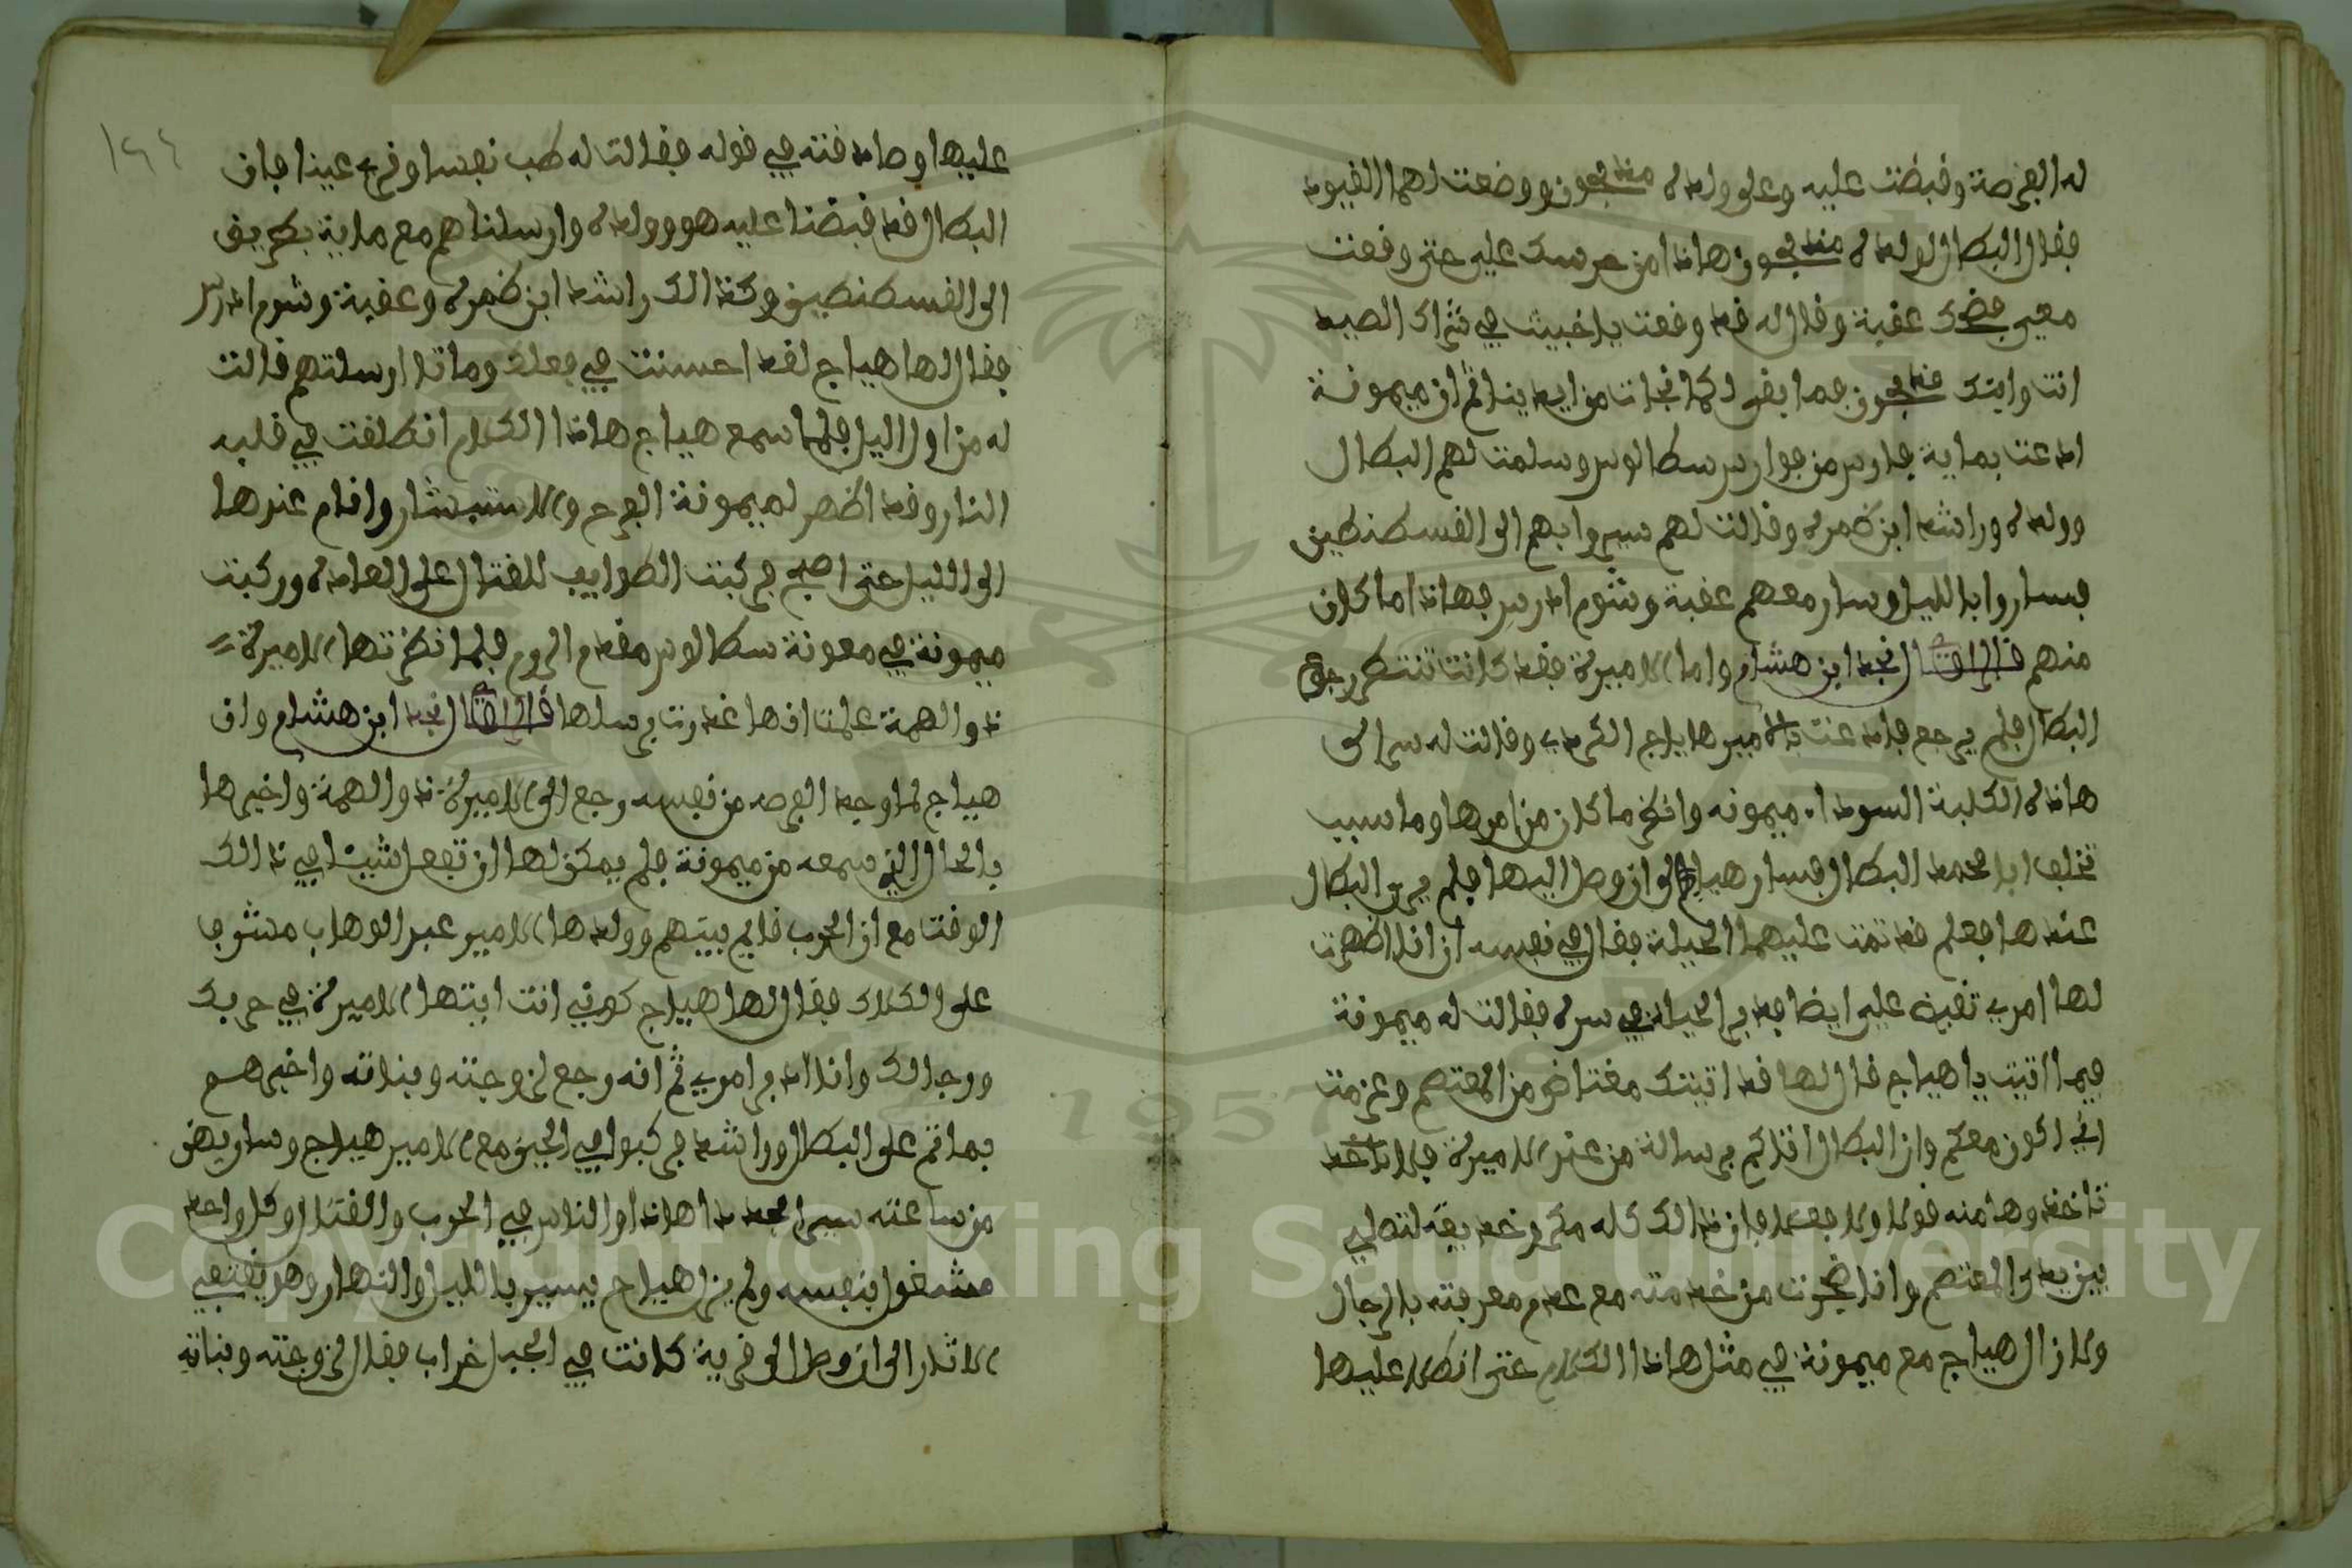 له الفرصة وقبضت عليه وعلى ولده مذبحون ووضعت لهما القيود
فقال البطال لولده مذبحون هاذا من حرسك علي حتى وقعت
معي فضحك عقبة وقال له قد وقعت يا خبيث في شراك الصيد
انت وابنك مذبحون فما بقى لكما نجات من ايدينا ثم ان ميمونة
ادعت بماية فارس من فوارس سكالوس وسلمت لهم البطال
وولده وراشد ابن ضمره وقالت لهم سيروا بهم الى القسطنطين
فساروا بالليل وسار معهم عقبة وشوم ادرس فهاذا ما كان
منهم قال الراوي نجد ابن هشام واما الاميرة فقد كانت تنتظر رجوع
البطال فلم يرجع فادعت بالامير هياج الكردي وقالت له سر الى
هاذه الكلبة السوداء ميمونه وانظر ما كان من امرها وما سبب
تخلف ابا محمد البطال فسار هياج الى ان وصل اليها فلم ير البطال
عندها فعلم قد تمت عليهما الحيلة فقال في نفسه ان انا اظهرت
لها امري تقبض علي ايضا فدبر الحيلة في سره فقالت له ميمونة
فيما اتيت يا هياج قال لها قد اتيتك مغتاض من المعتصم وعزمت
اني اكون معكم وان البطال اتاكم برسالة من عند الاميرة فلا تاخد
تاخدوها منه قولا ولا فعلا فان ذالك كله مكر وخديعة لتصلي
بين يدي المعتصم وانا ضجرت من خدمته مع عدم معرفته بالرجال
ولا زال هياج مع ميمونة في مثل هاذا الكلام حتى انطلا عليها
١٩٤
عليها وصادقته في قوله فقالت له طب نفسا وقر عينا فان
البطال قد قبضنا عليه هو وولده وارسلناهم مع ماية بطريق
الى القسطنطين وكذالك راشد ابن ضمره وعقبة وشوم ادرس
فقال لها هياج لقد احسنت في فعلك وماتا ارسلتهم قالت
له من اول اليل فلما سمع هياج هاذا الكلام انطلقت في قلبه
النار وقد اظهر لميمونة الفرح والاستبشار واقام عندها
الى الليل حتى اصبح فركبت الطوايف للقتال على العاده وركبت
ميمونة في معونة سكالوس مقدم الروم فلما نظرتها الاميرة
ذو الهمة علمت انها غدرت برسلها قال الراوي نجد ابن هشام وان
هياج لما وجد الفرصه من نفسه رجع الى الاميرة ذو الهمة واخبرها
بالحال الذي سمعه من ميمونة فلم يمكن لها ان تفعل شيئا في ذالك
الوقت مع ان الحرب قايم بينهم وولدها الامير عبد الوهاب مشرف
على الهلاك فقال لها هياج كوني انت ايتها الاميرة في حربك
ورجالك وانا ادبر امري ثم انه رجع لزوجته وبناته واخبرهم
بما تم على البطال وراشد فركبوا في الحين مع الامير هياج وسار بهن
من ساعته سيرا مجدا هاذا والناس في الحرب والقتال وكل واحد
مشغول بنفسه ولم يزل هياج يسير بالليل والنهار وهو يقتفي
الاثار الى ان وصل الى قرية كانت في الجبل خراب فقال لزوجته وبناته
Copyright © King Saud University
1957